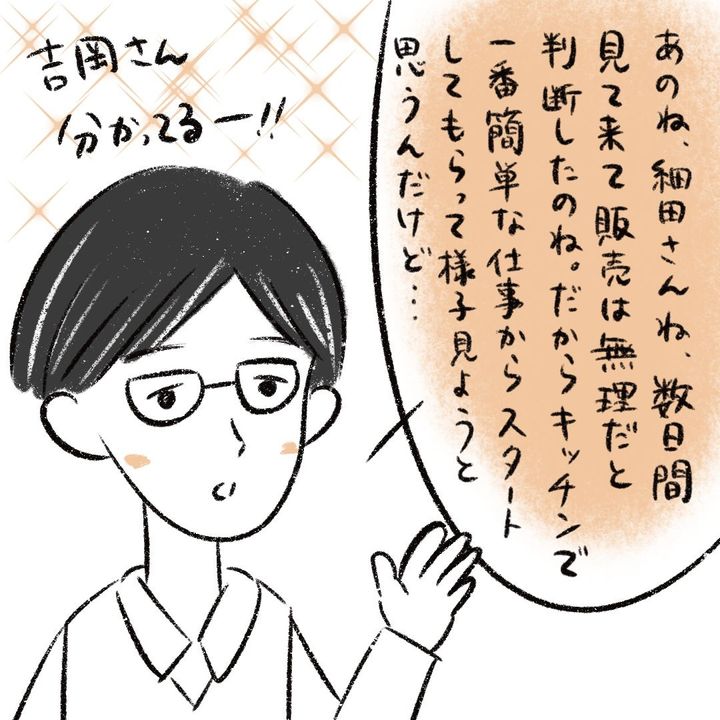 あのね、細田さんね、数日間
見て来て販売は無理だと
判断したのね。だからキッチンで
一番簡単な仕事からスタート
してもらって様子見ようと
思うんだけど…
吉岡さん
分かってるー!!